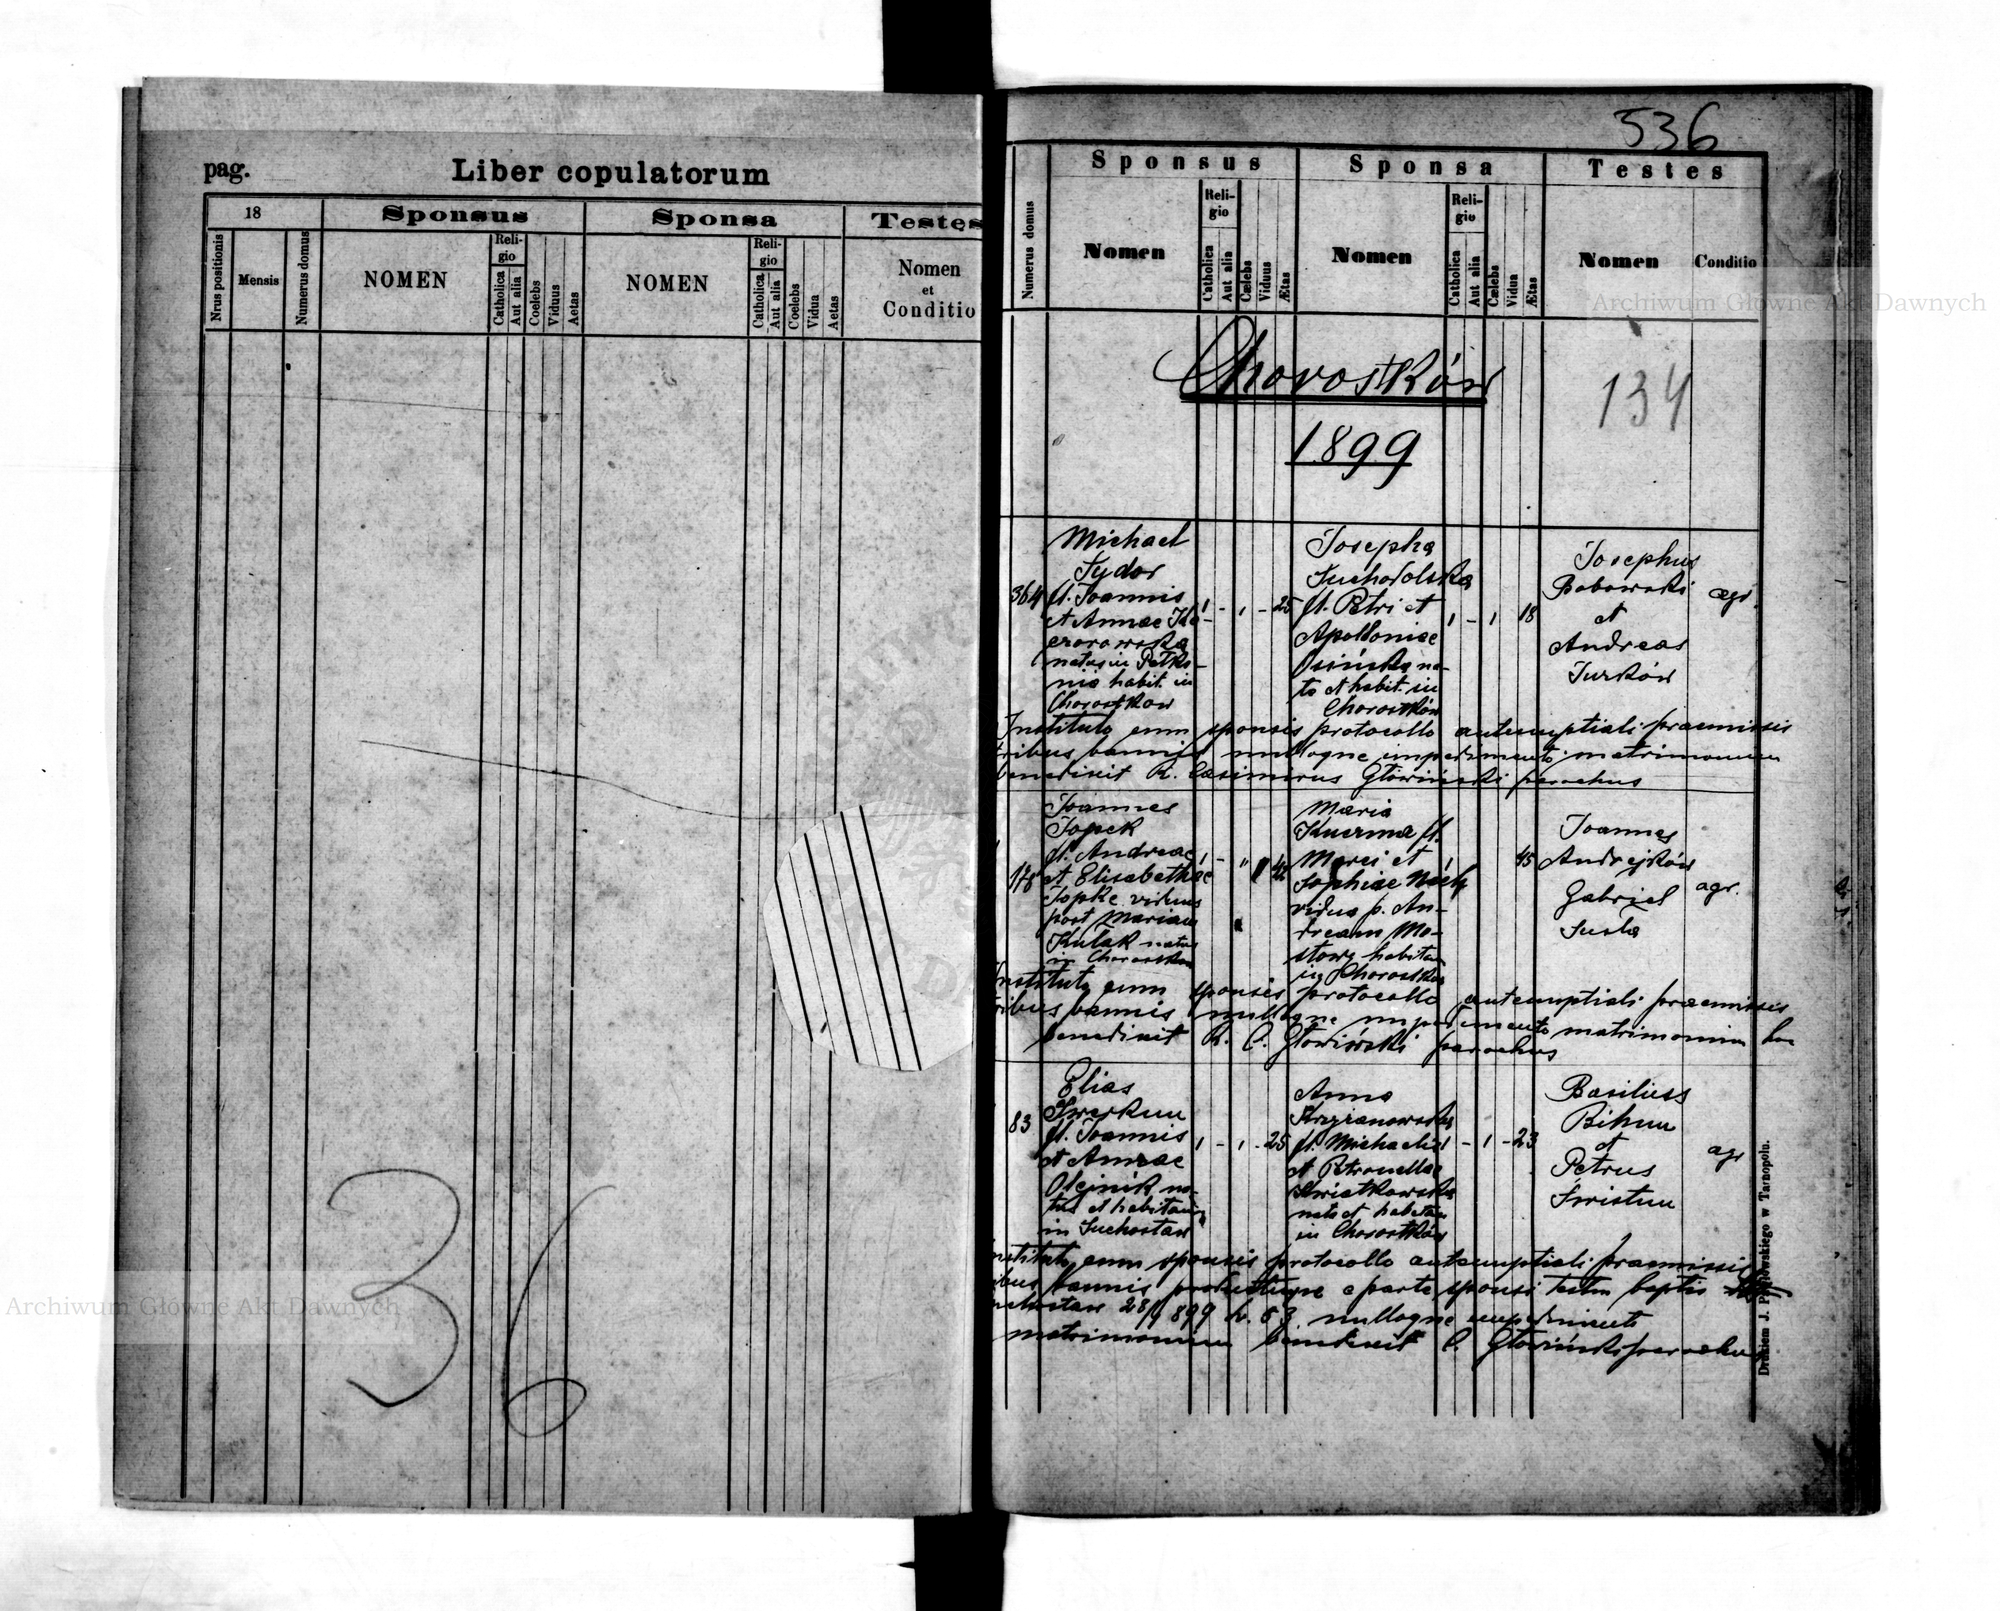 pag.
Liber copulatorum
18
Sponsus
Sponsa
Testes
Nrus positionis
Mensis
Numerus domus
NOMEN
Religio
Catholica
Aut alia
Coelebs
Viduus
Aetas
NOMEN
Religio
Catholica
Aut alia
Coelebs
Vidua
Aetas
Nomen
et
Conditio
36
536
Numerus domus
Sponsus
Sponsa
Testes
Nomen
Religio
Catholica
Aut alia
Cælebs
Viduus
Ætas
Nomen
Religio
Catholica
Aut alia
Cælebs
Vidua
Ætas
Nomen
Conditio
Archiwum Główne Akt Dawnych
Chorostków
134
1899
364
Michael
Sydor
fl. Joannis
et Annae
natus in
nia habit. in
Chorostkow
1 - 1 - 25
Josepha
Suchodolska
fl. Petri et
Apolloniae
Osińska na-
ta et habit. in
Chorostków
1 - 1 18
Josephus
Bobowski
et
Andreas
Jurków
agr.
Instituto cum sponsis protocollo antenuptiali praemissis
tribus bannis nulloque impedimento matrimonium
benedixit R. Casimirus Głowiński parochus
178
Joannes
Sopek
fl. Andreae
et Elisabethae
Sopke viduus
post Mariam
Kułak natus
in Chorostkow
42
Maria
fl.
et
Sophiae
vidua p. An-
dream Mo-
stowy habitans
in Chorostkow
45
Joannes
Andrejków
Gabriel
agr.
Instituto cum sponsis protocollo antenuptiali praemissis
tribus bannis nulloque impedimento matrimonium hoc
benedixit R. C. Głowiński parochus
83
Elias
Swerkun
fl. Joannis
et Annae
Olejnik na-
tus et habitans
in Suchostaw
1 - 1 - 25
Anna
Krzyżanowska
fl. Michaelis
et Petronellae
Kwiatkowska
nata et habitans
in Chorostków
- 1 - 23
Basilius
Bihun
et
Petrus
Swistun
agr
Instituto cum sponsis protocollo antenuptiali praemissis
tribus bannis productoque e parte sponsi testim baptis
Suchostaw 28/9 899 L. 83. nulloque impedimento
matrimonium benedixit C. Głowiński parochus
Drukiem J. Pawłowskiego w Tarnopolu.
Archiwum Główne Akt Dawnych